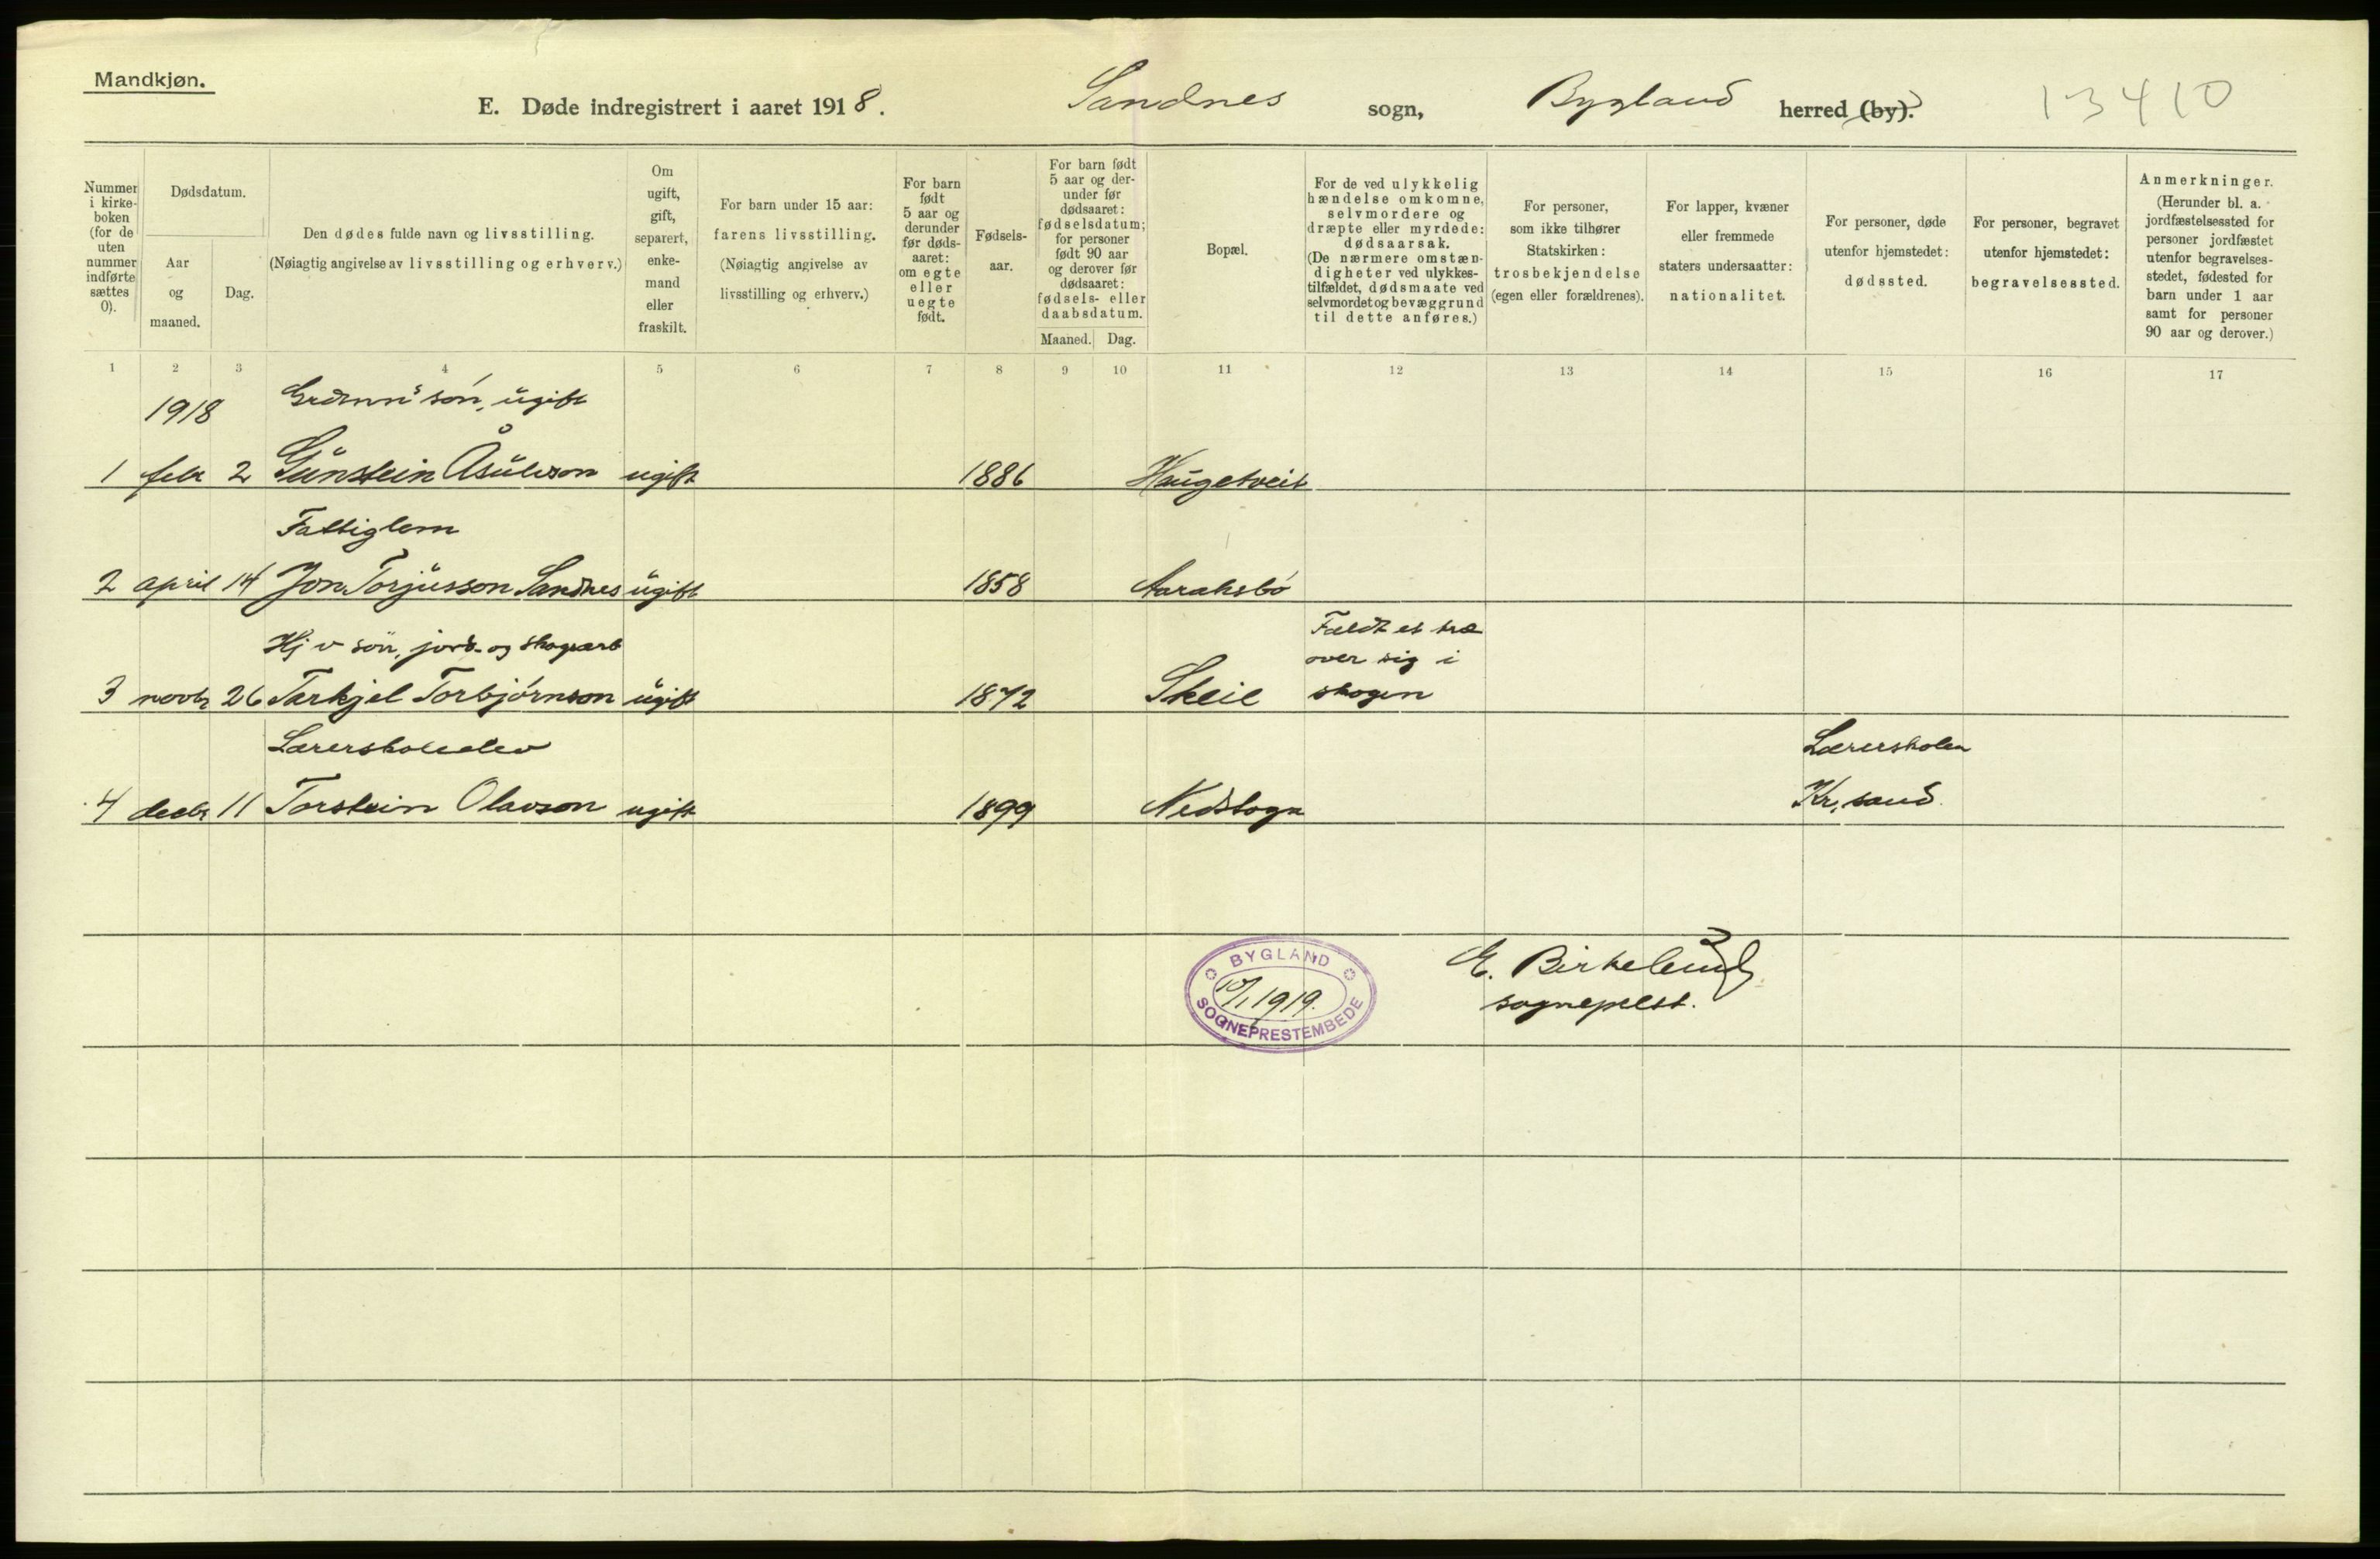 Mandkjøn.
E. Døde indregistrert i aaret 1918. Sandnes sogn, Bygland herred (by). 13410
Nummer i kirkeboken (for de uten nummer indførte sættes 0).
Dødsdatum.
Aar og maaned.
Dag.
Den dødes fulde navn og livsstilling.
(Nøiagtig angivelse av livsstilling og erhverv.)
Om ugift, gift, separert, enkemand eller fraskilt.
For barn under 15 aar: farens livsstilling.
(Nøiagtig angivelse av livsstilling og erhverv.)
For barn født 5 aar og derunder før dødsaaret: om egte eller uegte født.
Fødselsaar.
For barn født 5 aar og derunder før dødsaaret: fødselsdatum; for personer født 90 aar og derover før dødsaaret: fødsels- eller daabsdatum.
Maaned.
Dag.
Bopæl.
For de ved ulykkelig hændelse omkomne, selvmordere og dræpte eller myrdede: dødsaarsak.
(De nærmere omstændigheter ved ulykkestilfældet, dødsmaate ved selvmordet og bevæggrund til dette anføres.)
For personer, som ikke tilhører Statskirken: trosbekjendelse (egen eller forældrenes).
For lapper, kvæner eller fremmede staters undersaatter: nationalitet.
For personer, døde utenfor hjemstedet: dødssted.
For personer, begravet utenfor hjemstedet: begravelsessted.
Anmerkninger.
(Herunder bl. a. jordfæstelsessted for personer jordfæstet utenfor begravelsesstedet, fødested for barn under 1 aar samt for personer 90 aar og derover.)
1 2 3 4 5 6 7 8 9 10 11 12 13 14 15 16 17
1918 søn, ugift
1 febr 2 Gunstein Åsulvson ugift 1886 Haugetveit
Fattiglem
2 april 14 Jon Torjusson Sandnes ugift 1858 Aaraksbø
Hj v søn, jord- og skogsarb Fældt et træ over sig i skogen
3 novbr 26 Tarkjel Torbjørnson ugift 1872 Skeie
Lærerskoleelev Lærerskolen
4 decbr 11 Torstein Olavson ugift 1899 Nedstogn Kr.sand
BYGLAND
10/1 1919.
SOGNEPRESTEMBEDE
E. Birkelund
sogneprest.